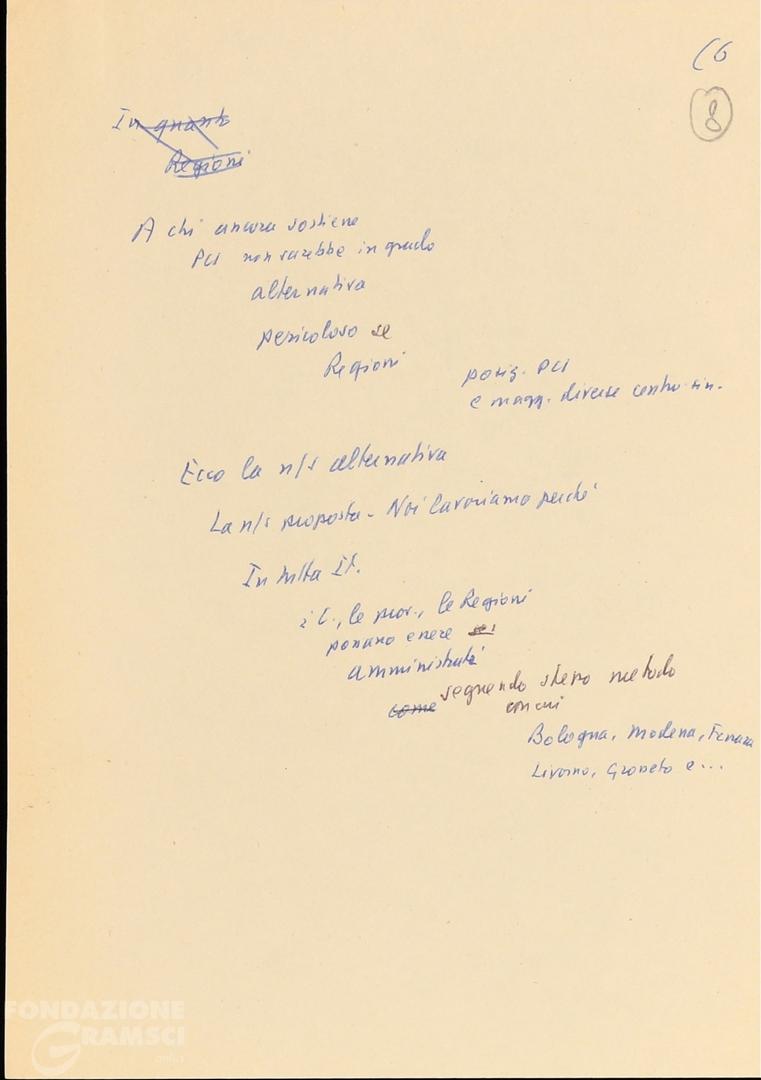 (6
8
In quanto
Regioni
A chi ancora sostiene
PCI non sarebbe in grado
alternativa
pericoloso se
Regioni
posiz. PCI
e magg. diverse centro-sin.
Ecco la n/s alternativa
La n/s proposta - Noi lavoriamo perché
In tutta It.
i C., le prov., le Regioni
possano essere
amministrati
come seguendo stesso metodo
con cui
Bologna, Modena, Ferrara
Livorno, Grosseto e...
FONDAZIONE
GRAMSCI
onlus